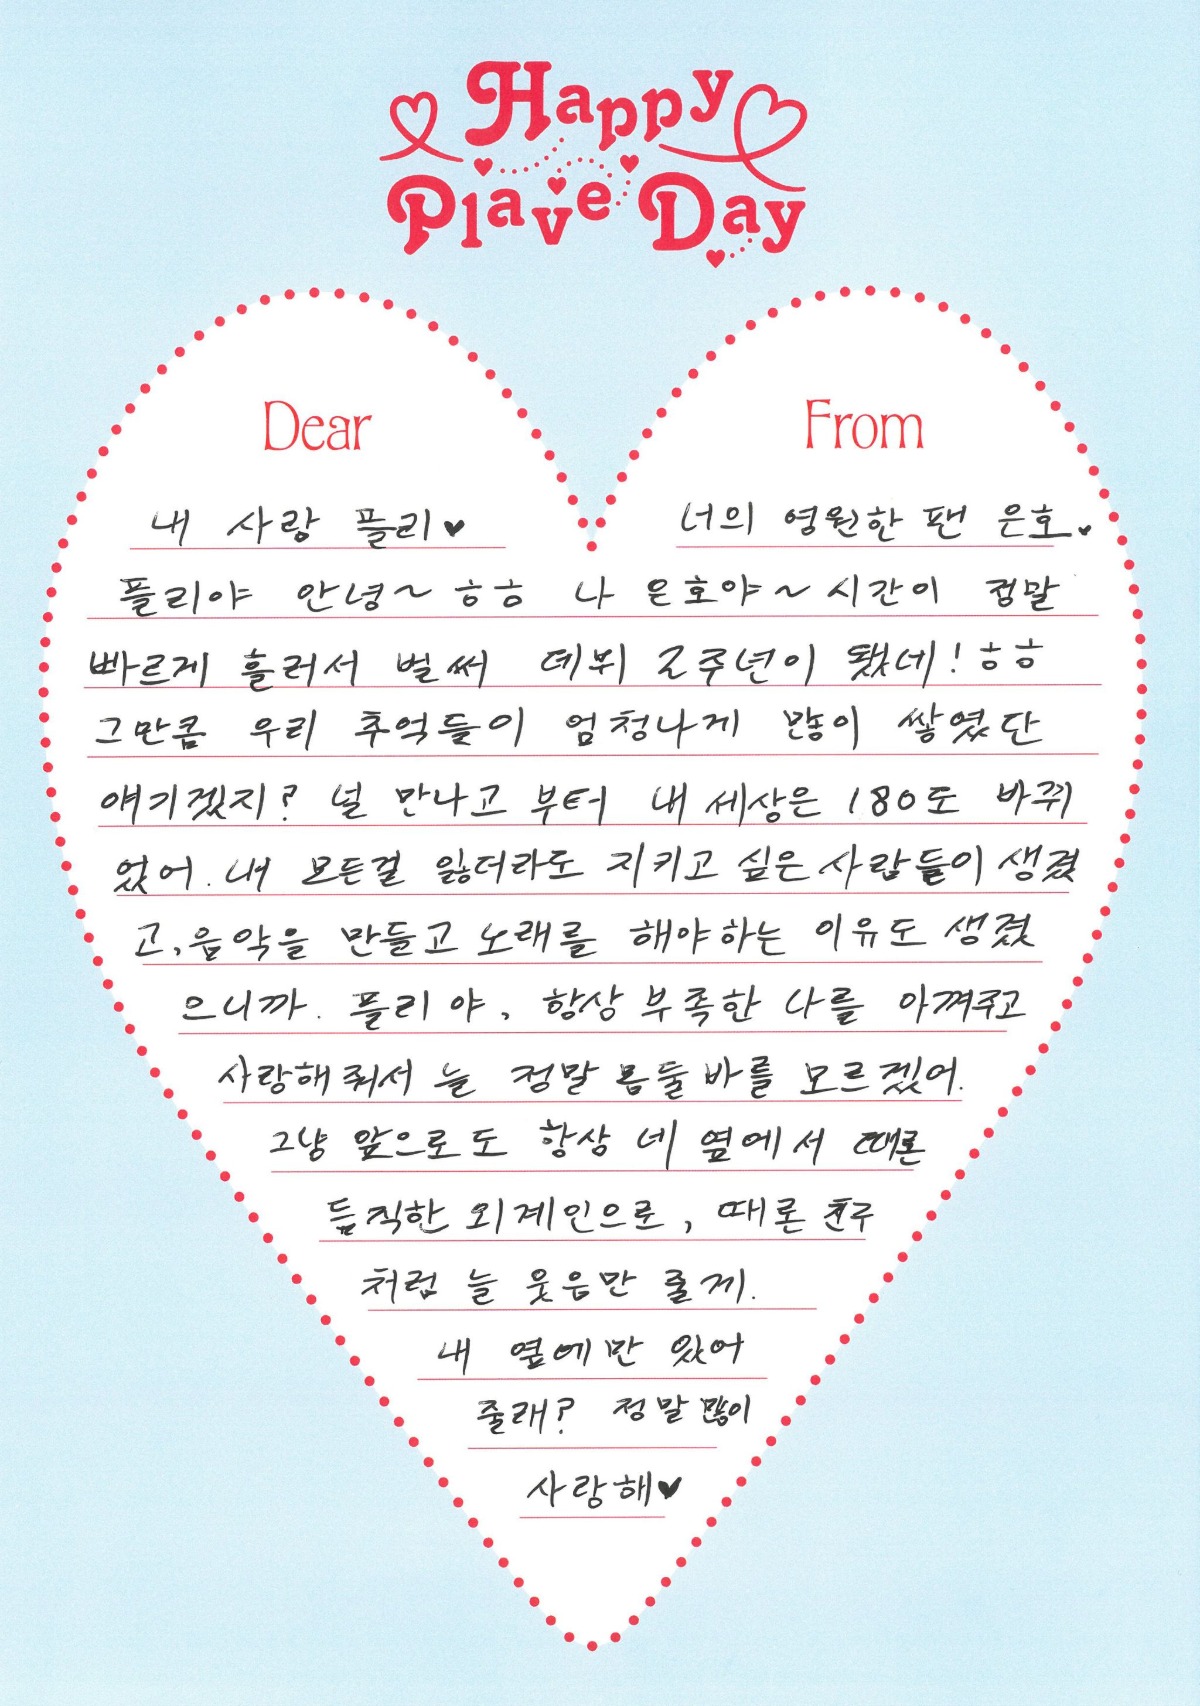 Happy
Plave Day
Dear
From
내 사랑 플리♥
너의 영원한 팬 은호♥
플리야 안녕~ ㅎㅎ 나 은호야~ 시간이 정말
빠르게 흘러서 벌써 데뷔 2주년이 됐네! ㅎㅎ
그만큼 우리 추억들이 엄청나게 많이 쌓였단
얘기겠지? 널 만나고 부터 내 세상은 180도 바뀌
었어. 내 모든걸 잃더라도 지키고 싶은 사람들이 생겼
고, 음악을 만들고 노래를 해야하는 이유도 생겼
으니까. 플리야, 항상 부족한 나를 아껴주고
사랑해줘서 늘 정말 몸둘바를 모르겠어.
그냥 앞으로도 항상 네 옆에서 때론
듬직한 외계인으로, 때론 친구
처럼 늘 웃음만 줄게.
내 옆에만 있어
줄래? 정말 많이
사랑해♥